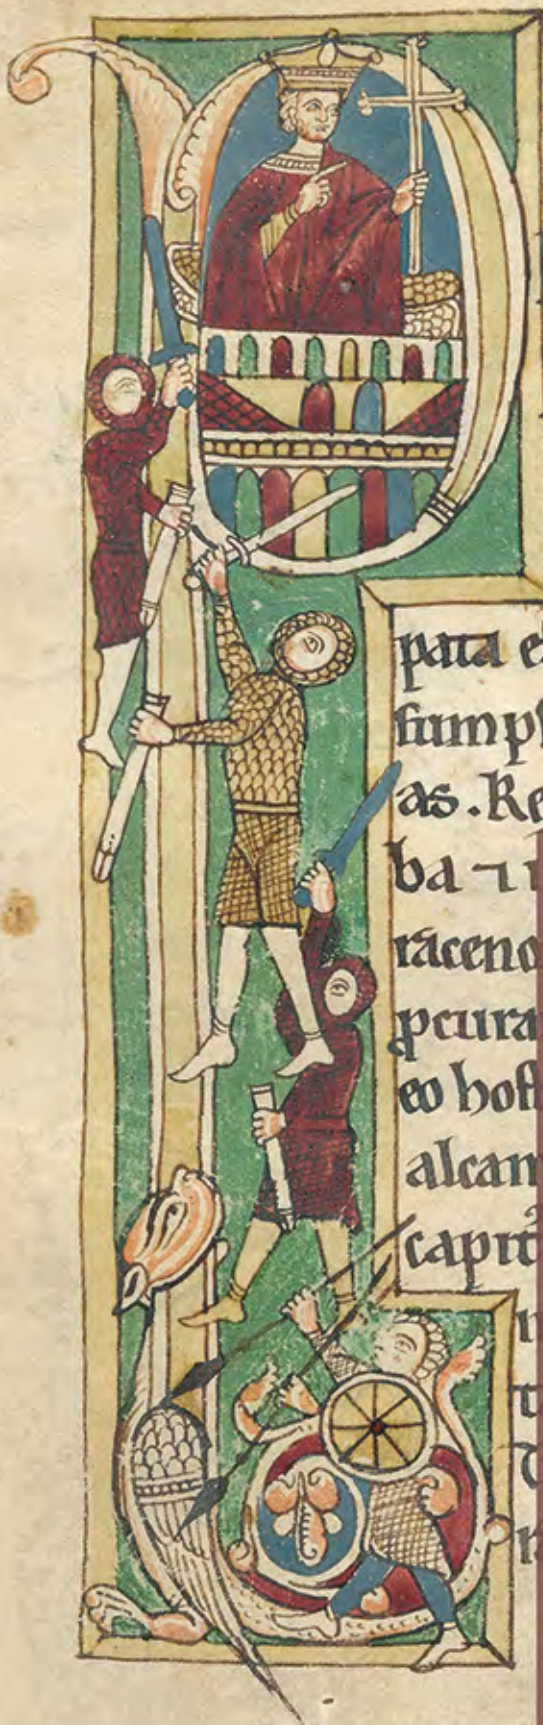 P
pata e
ſumpſ
as. Re
ba ⁊ 
raceno
ꝓcura
eo hoſt
alcan
capit